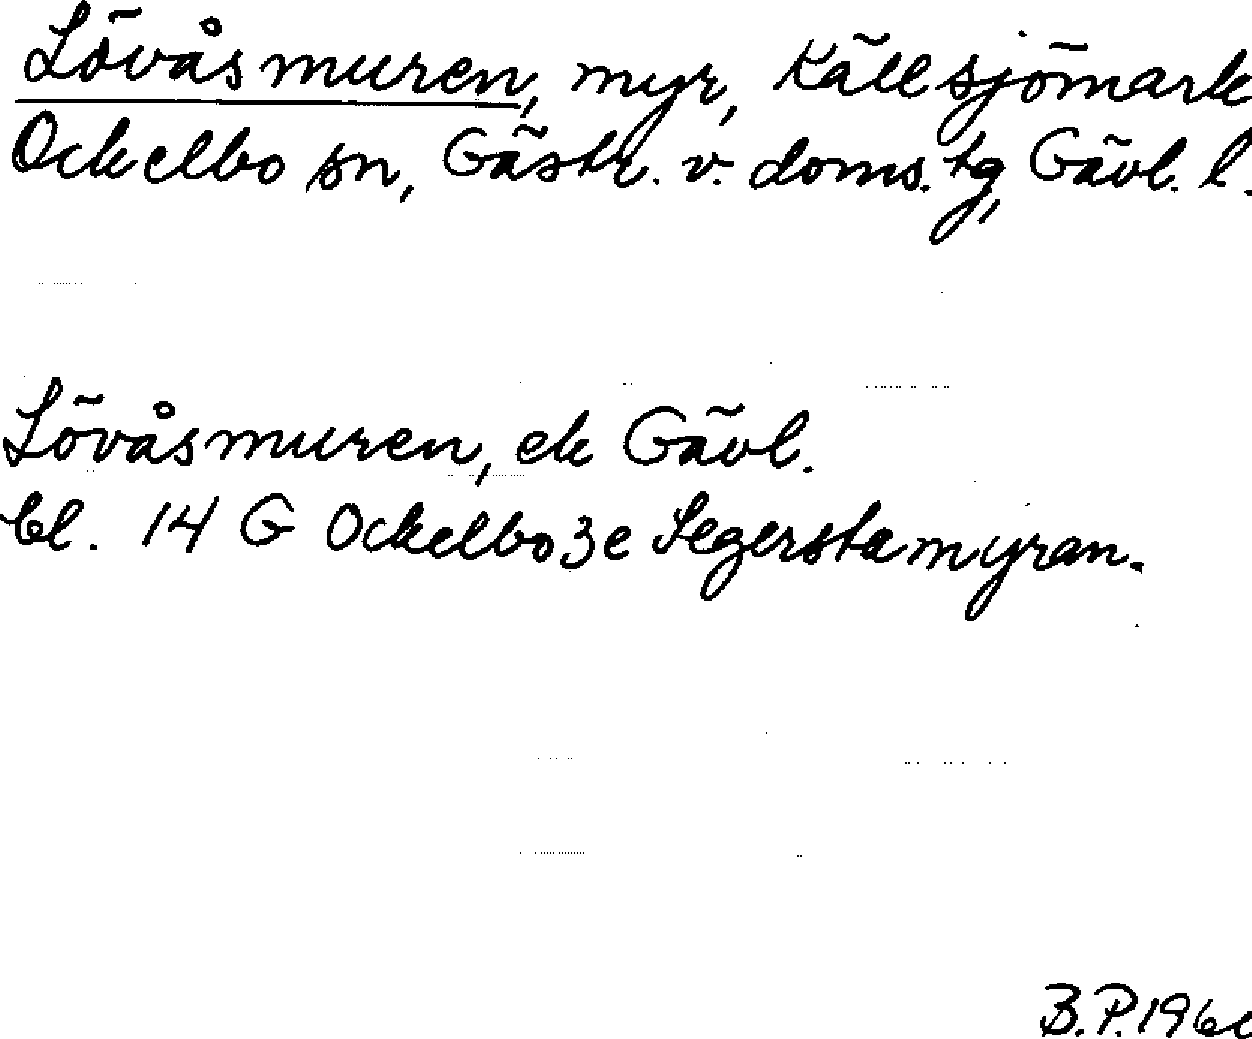 Lövåsmuren, myr, Källsjömark
Ockelbo sn, Gästr. v. doms. tg, Gävl. l.
Lövåsmuren, ek Gävl.
bl. 14 G Ockelbo 3 e Segerstamyran.
B.P.